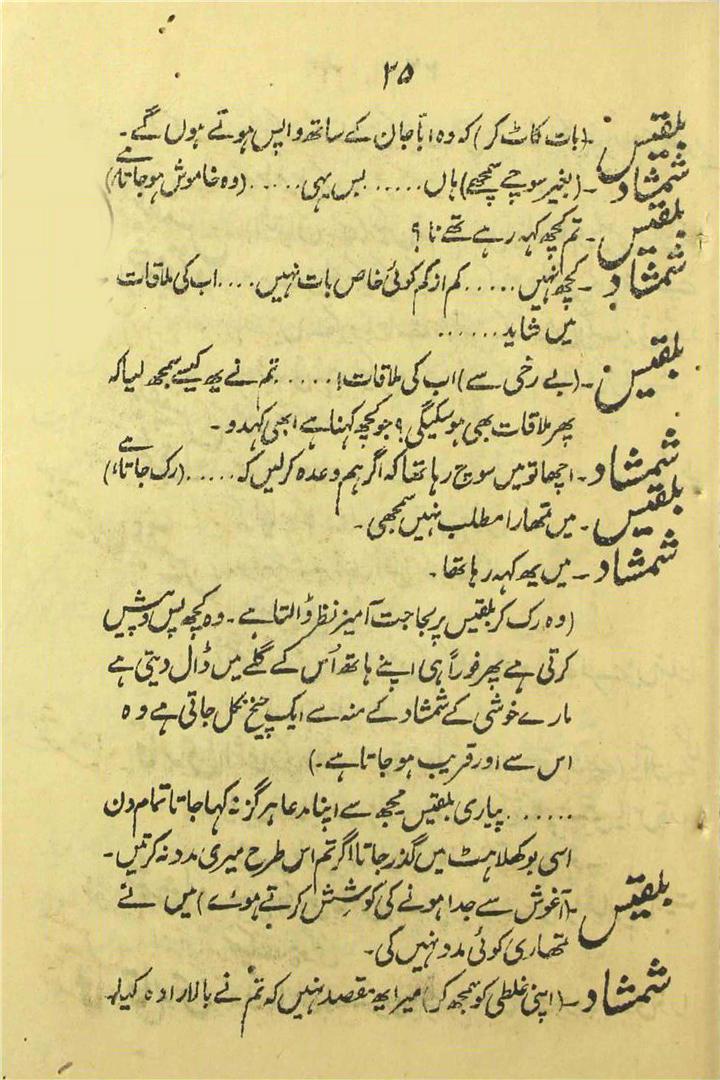 ۳۵
بلقیس ۔ (بات کاٹ کر) کہ وہ ابا جان کے ساتھ واپس ہوتے ہوں گے۔
شمشاد ۔ (بغیر سوچے سمجھے) ہاں ...... بس یہی ..... (وہ خاموش ہو جاتا ہے)
بلقیس ۔ تم کچھ کہہ رہے تھے نا؟
شمشاد ۔ کچھ نہیں ..... کم از کم کوئی خاص بات نہیں .... اب کی ملاقات
میں شاید ......
بلقیس ۔ (بے رخی سے) اب کی ملاقات! ..... تم نے یہ کیسے سمجھ لیا کہ
پھر ملاقات بھی ہو سکیگی؟ جو کچھ کہنا ہے ابھی کہدو۔
شمشاد ۔ اچھا تو میں سوچ رہا تھا کہ اگر ہم وعدہ کر لیں کہ ..... (رک جاتا ہے)
بلقیس ۔ میں تمھارا مطلب نہیں سمجھی۔
شمشاد ۔ میں یہ کہہ رہا تھا۔
(وہ رک کر بلقیس پر لجاجت آمیز نظر ڈالتا ہے۔ وہ کچھ پس و پیش
کرتی ہے پھر فوراً ہی اپنے ہاتھ اُس کے گلے میں ڈال دیتی ہے
مارے خوشی کے شمشاد کے منہ سے ایک چیخ نکل جاتی ہے وہ
اس سے اور قریب ہو جاتا ہے۔)
...... پیاری بلقیس مجھ سے اپنا مدعا ہرگز نہ کہا جاتا تمام دن
اسی بوکھلاہٹ میں گذر جاتا اگر تم اس طرح میری مدد نہ کرتیں۔
بلقیس ۔ (آغوش سے جدا ہونے کی کوشش کرتے ہوئے) میں نے
تمھاری کوئی مدد نہیں کی۔
شمشاد ۔ (اپنی غلطی کو سمجھ کر) میرا یہ مقصد نہیں کہ تم نے بالارادہ کیا۔